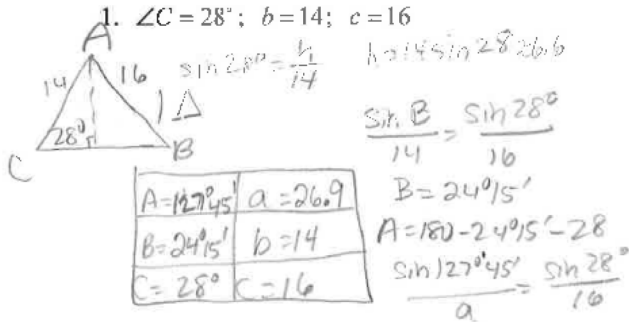 1. ∠C = 28°; b = 14; c = 16
A
14
16
28°
C
B
1 Δ
sin 28° = h/14
h = 14 sin 28 ≈ 6.6
sin B/14 = sin 28°/16
B = 24°15'
A = 180 - 24°15' - 28
sin 127°45'/a = sin 28°/16
A = 127°45' a = 26.9
B = 24°15' b = 14
C = 28° C = 16